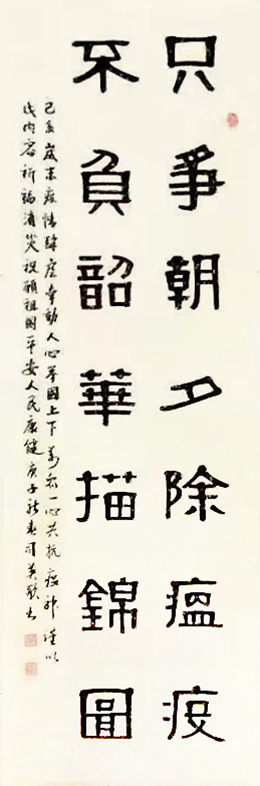 只爭朝夕除瘟疫
不負韶華描錦圖
己亥歲末疫情肆虐牽動人心举國上下萬众一心共抗疫神謹以
此内容祈福消災祝願祖國平安人民康健庚子新春司英書